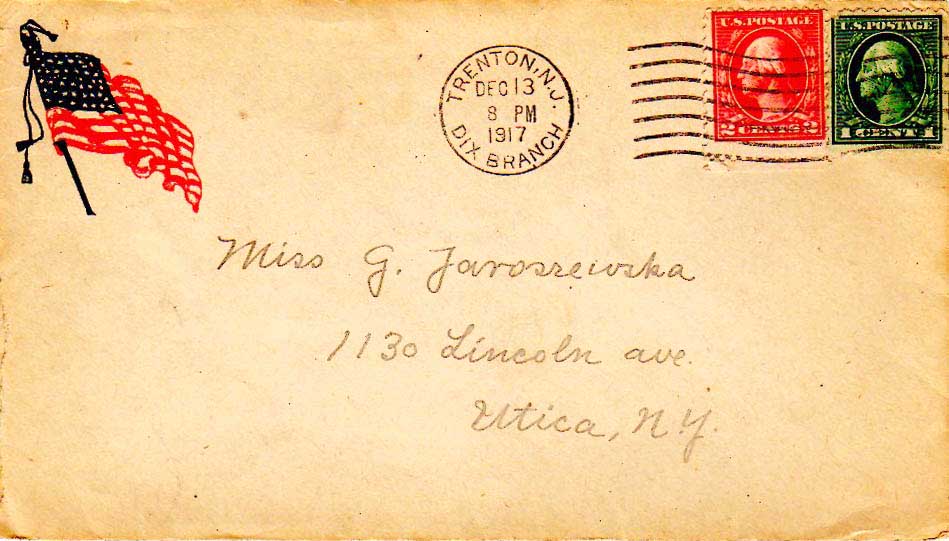 TRENTON, N.J.
DEC 13
8 PM
1917
DIX BRANCH
U.S. POSTAGE
2 CENTS 2
U.S. POSTAGE
1 CENT 1
Miss G. Jaroszewska
1130 Lincoln ave.
Utica, N.Y.